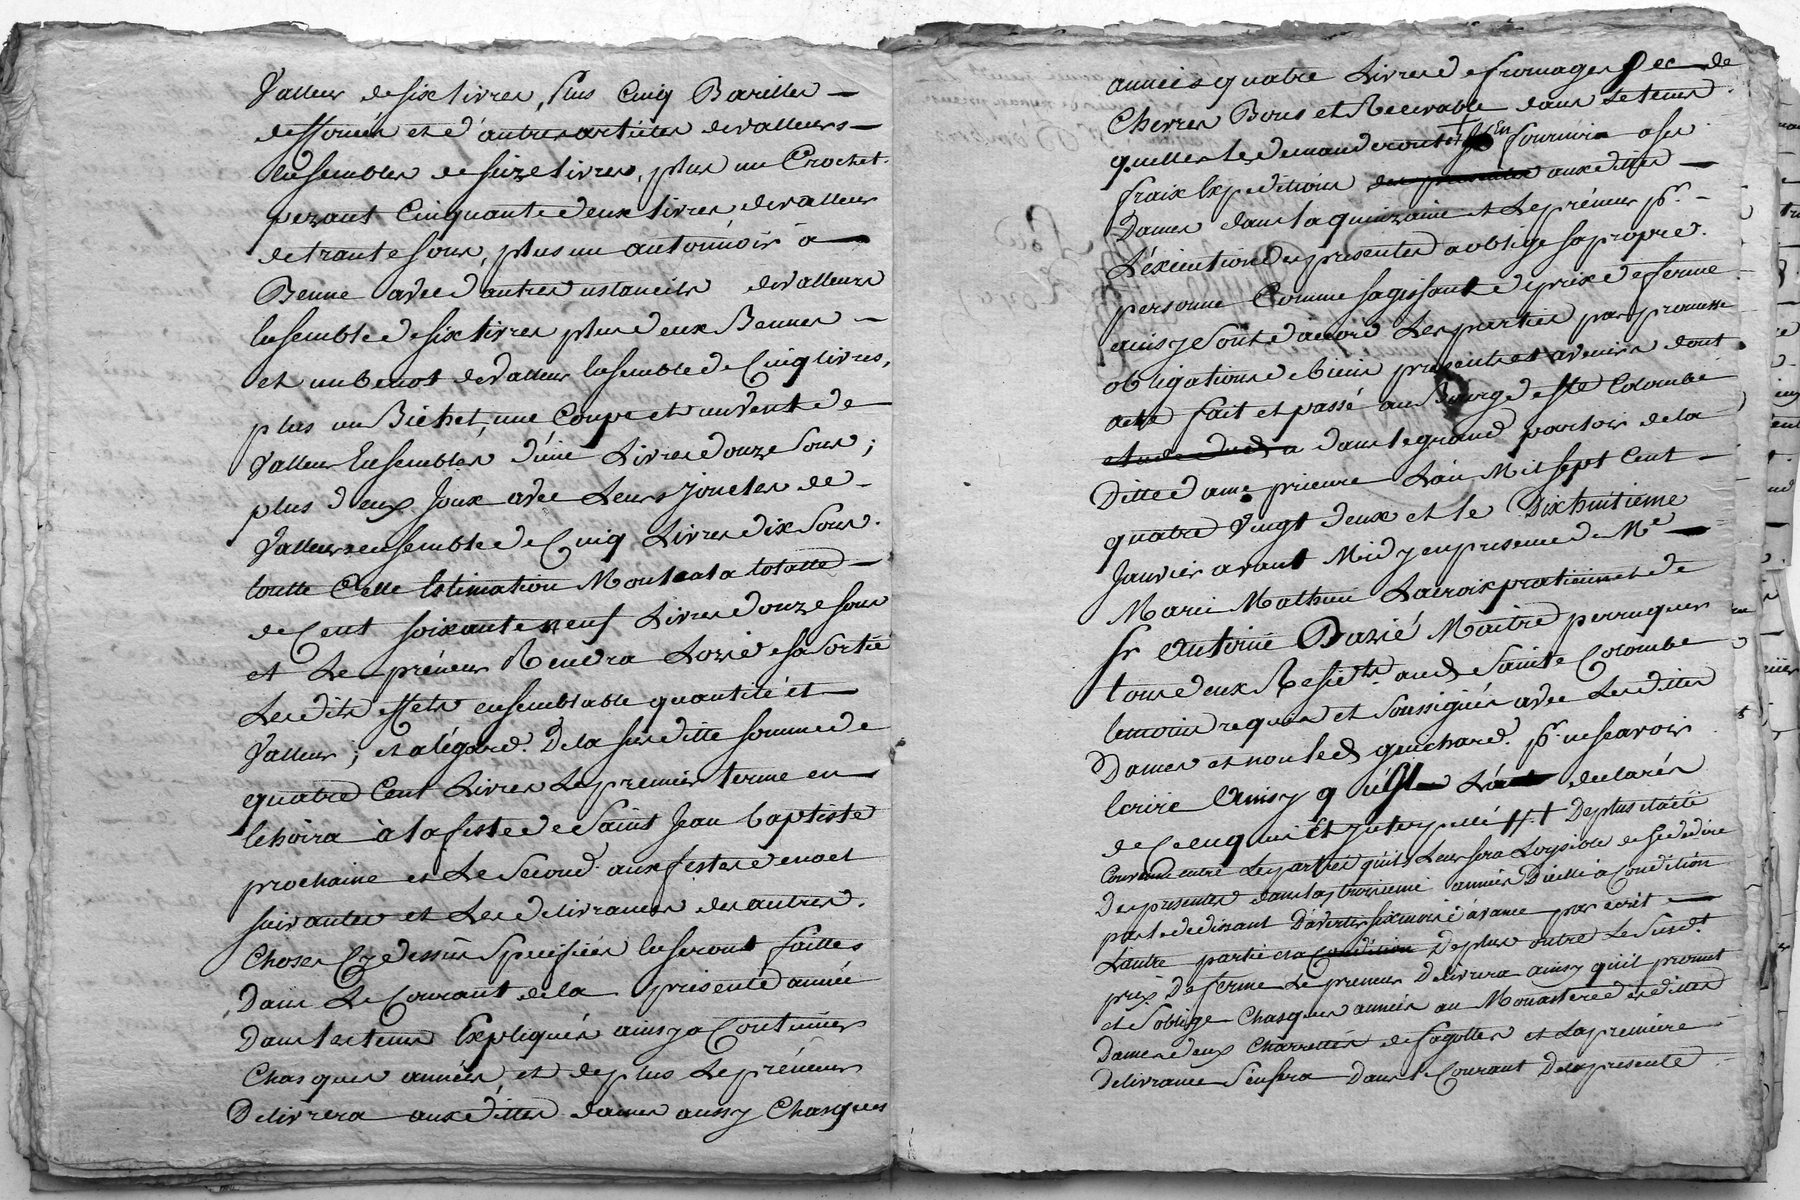 Valleur de six livres, plus Cinq Barilles
deffoncés et d'autres articles de valleurs
Ensembles de seize livres, plus un Crochet
pezant Cinquante deux livres de valleur
de trante sous, plus un antonnoir à
Benne avec d'autres ustancils de valleurs
Ensemble de six livres plus deux Bennes
et un benot de valleur Ensemble de Cinq livres,
plus un Bichet, une Coupe et un vent de
Valleur Ensembles d'une Livre douze Sous;
plus deux Joux avec Leurs joucles de
Valleur ensemble de Cinq Livres dix Sous
toutte Cette Estimation Monte a la totalle
de Cent soixante neuf Livres douze sous
et Le préneur Rendra Lors de sa Sortie
Lesdits effets en semblable quantité et
Valleur; et a l'égard De la susditte somme de
quatre Cent Livres Le premier terme en
lehoira à la feste de Saint Jean baptiste
prochaine et Le Second aux festes de noel
suivantes et Les delivrances des autres
Choses Cy dessus Speciffiées luseront faittes
Dans Le Courant de la présente année
Dans Les tems Expliqués ainsy a Continuer
Chasques années, et de plus Le préneur
Delivrera aux dittes dames aussy Chasques
années quatre Livres de fromages sec de
Chevres Bons et Recevable dans Le tems
quelles les demanderont et En fournira a ses
fraix Expeditions des presentes aux dittes
Dames dans La quinzaine et Le préneur pr.
L'éxécution des presentes a oblige sa propre
personne Comme sagissant de prix de ferme
ainsy Sont d'acord Les parties par promesse
obligations de biens presents et avenirs dont
acte fait et passé au Bourg de Ste Colombe
dans le grand parloir de la
Ditte dame prieure L'an Mil sept Cent
quatre Vingt deux et le Dixhuitieme
Janvier avant Midy en presence de Me
Marie Mathieu Lacroix praticien et de
Sr Antoine Bazié Maitre perruquier
tous deux Residts. aud Sainte Colombe
temoins requis et Soussignés avec Les dittes
Dames et non led guichard pr. ne scavoir
Ecrire Ainsy q déclarés
de Ce enquis Et Interpellé /// + De plus a été
Convenu entre Les parties qu'il Leur sera Loysible de se dédire
Des presentes dans la troisieme année Dicelle à Condition
par le dedisant D'avertir six mois à avance par écrit
L'autre partie et a Condition De plus outre Le Susdt.
prix De ferme Le preneur Delivrera ainsy qu'il promet
et S'oblige Chasques années au Monastere desdittes
Dames deux Charrettés de fagottes et La premiere
Delivrance S'ensera Dans Le Courant De la presente